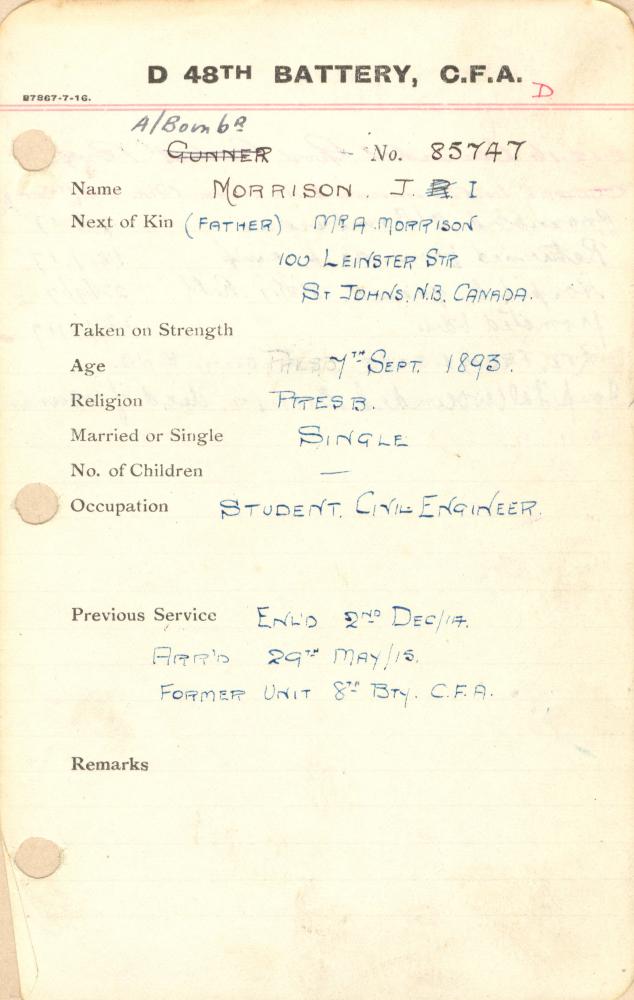 D 48TH BATTERY, C.F.A.
D
B7867-7-16.
A/Bombr
GUNNER No. 85747
Name MORRISON. J. I
Next of Kin (FATHER) MR A. MORRISON
100 LEINSTER STR
ST JOHNS, N.B. CANADA.
Taken on Strength
Age 7TH SEPT. 1893.
Religion PRESB.
Married or Single SINGLE
No. of Children —
Occupation STUDENT. CIVIL ENGINEER.
Previous Service ENL'D 2ND DEC/14.
ARR'D 29TH MAY/15.
FORMER UNIT 8TH BTY. C.F.A.
Remarks